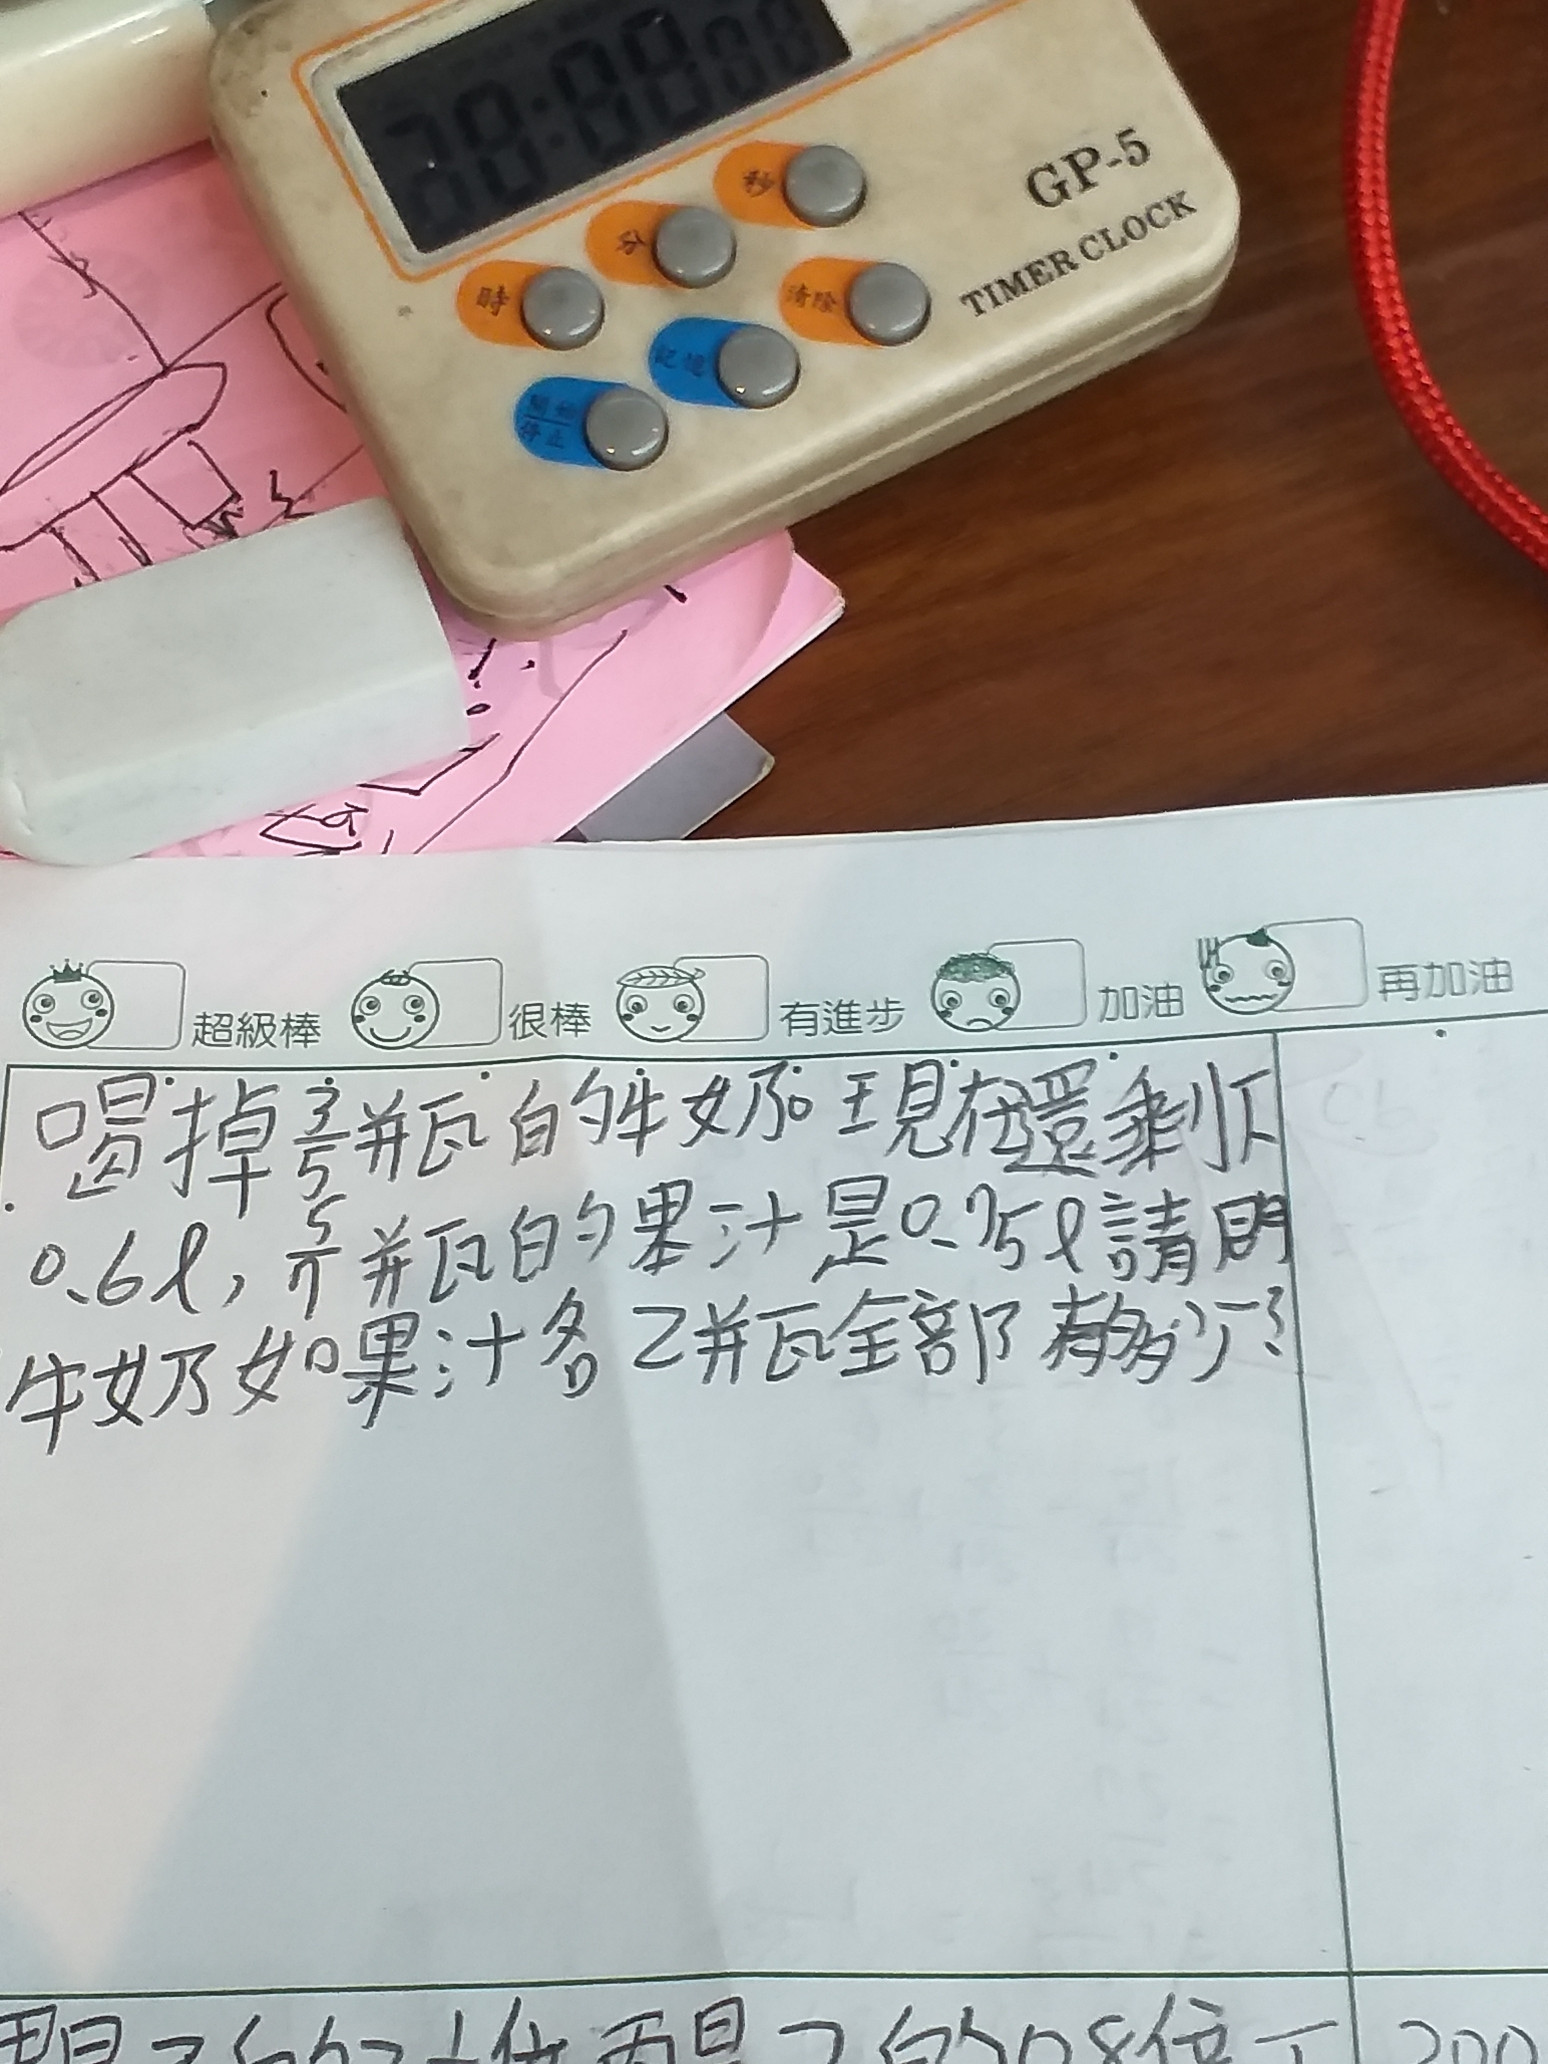 秒
GP-5
分
TIMER CLOCK
時
清除
記憶
開始
停止
超級棒 很棒 有進步 加油 再加油
喝掉3/5瓶的牛奶現在還剩下
0.6ℓ,
瓶的果汁是0.75ℓ請問
牛奶如果汁各2瓶全部有多少?